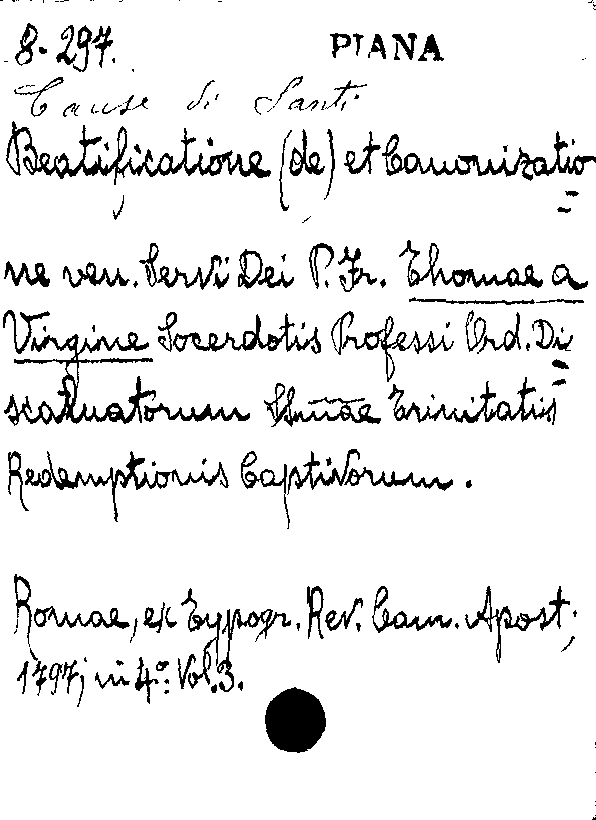 8-297. PIANA
Cause di Santi
Beatificatione (de) et Canonizatio=
ne ven. Servi Dei P. Fr. Thomae a
Virgine Socerdotis Professi Ord. Di=
scalceatorum SSmae Trinitatis
Redemptionis Captivorum.
Romae, ex Typogr. Rev. Cam. Apost;
1797; in 4º: Vol. 3.